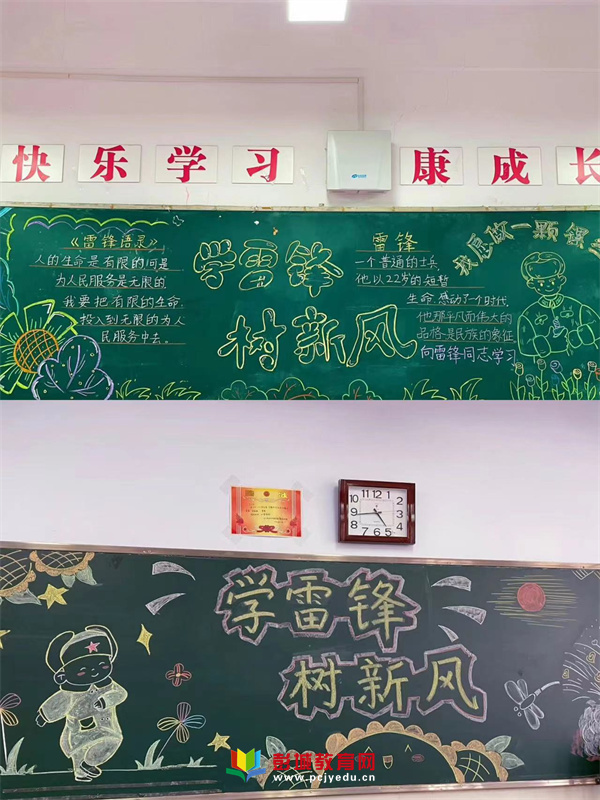 快乐学习 康成长
《雷锋语录》
人的生命是有限的可是
为人民服务是无限的
我要把有限的生命.
投入到无限的为人
民服务中去。
学雷锋
树新风
雷锋
一个普通的士兵
他以22岁的短暂
生命.感动了一个时代
他那平凡而伟大的
品格是民族的象征
向雷锋同志学习
我愿做一颗螺
12
1
2
3
4
5
6
7
8
9
10
11
学雷锋
树新风
彭城教育网
www.pcjyedu.cn